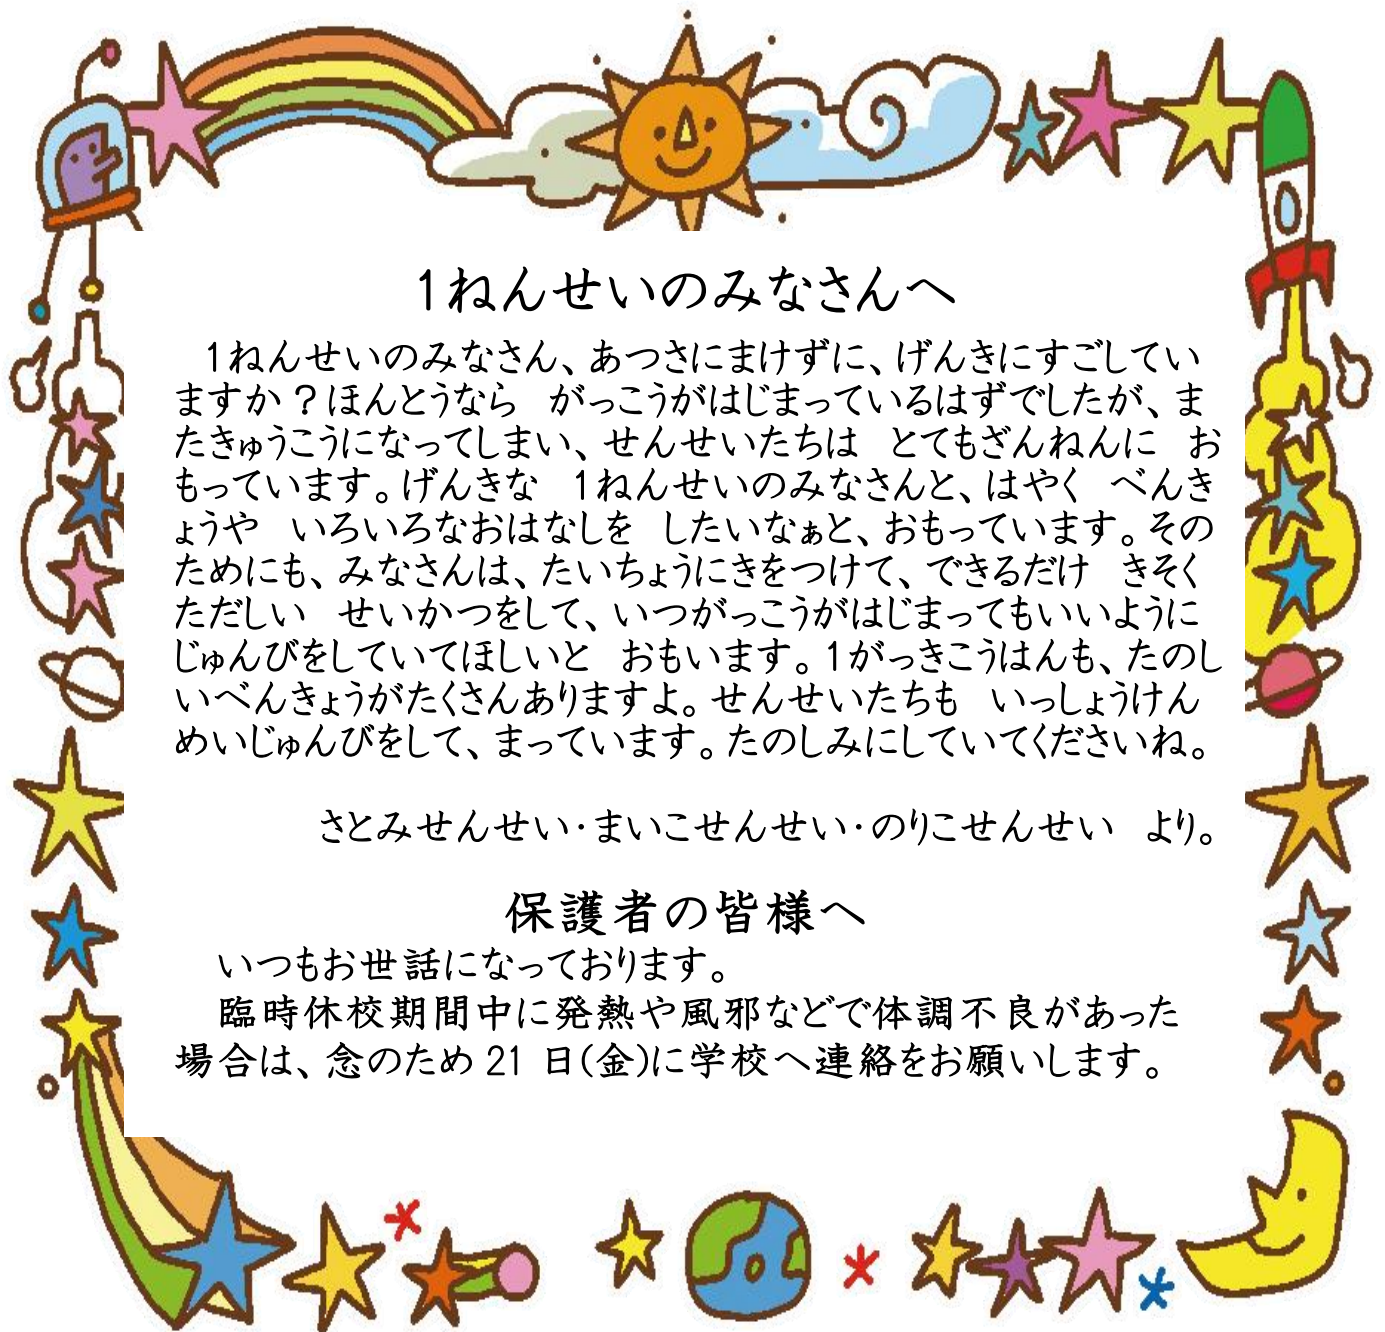 1ねんせいのみなさんへ
1ねんせいのみなさん、あつさにまけずに、げんきにすごしてい
ますか？ほんとうなら　がっこうがはじまっているはずでしたが、ま
たきゅうこうになってしまい、せんせいたちは　とてもざんねんに　お
もっています。げんきな　1ねんせいのみなさんと、はやく　べんき
ょうや　いろいろなおはなしを　したいなぁと、おもっています。その
ためにも、みなさんは、たいちょうにきをつけて、できるだけ　きそく
ただしい　せいかつをして、いつがっこうがはじまってもいいように
じゅんびをしていてほしいと　おもいます。1がっきこうはんも、たのし
いべんきょうがたくさんありますよ。せんせいたちも　いっしょうけん
めいじゅんびをして、まっています。たのしみにしていてくださいね。
さとみせんせい・まいこせんせい・のりこせんせい　より。
保護者の皆様へ
いつもお世話になっております。
臨時休校期間中に発熱や風邪などで体調不良があった
場合は、念のため 21 日(金)に学校へ連絡をお願いします。